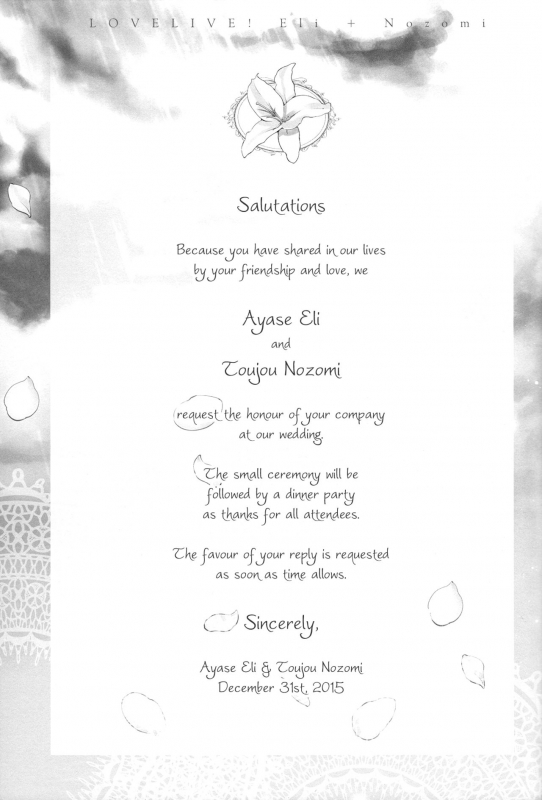 LOVELIVE! Eli + Nozomi
Salutations
Because you have shared in our lives
by your friendship and love, we
Ayase Eli
and
Toujou Nozomi
request the honour of your company
at our wedding.
The small ceremony will be
followed by a dinner party
as thanks for all attendees.
The favour of your reply is requested
as soon as time allows.
Sincerely,
Ayase Eli & Toujou Nozomi
December 31st, 2015